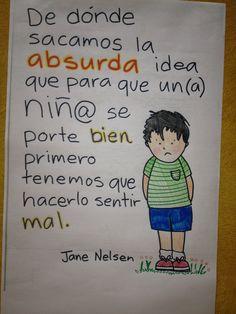 De dónde
sacamos la
absurda idea
que para que un(a)
niñ@ se
porte bien
primero
tenemos que
hacerlo sentir
mal.
Jane Nelsen